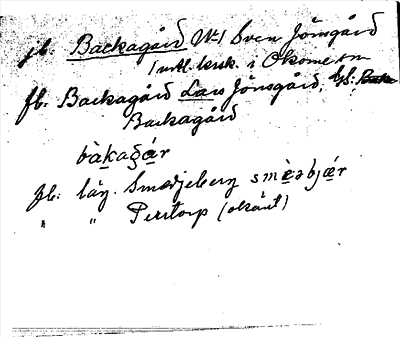 jb. Backagård №1 Sven Jönsgård
i Okome sn
fb. Backagård Lars Jönsgård,
Backagård
bàkaǥár
fb: läg. Smedjeberg smèəbjær
" " Perstorp (okänt)